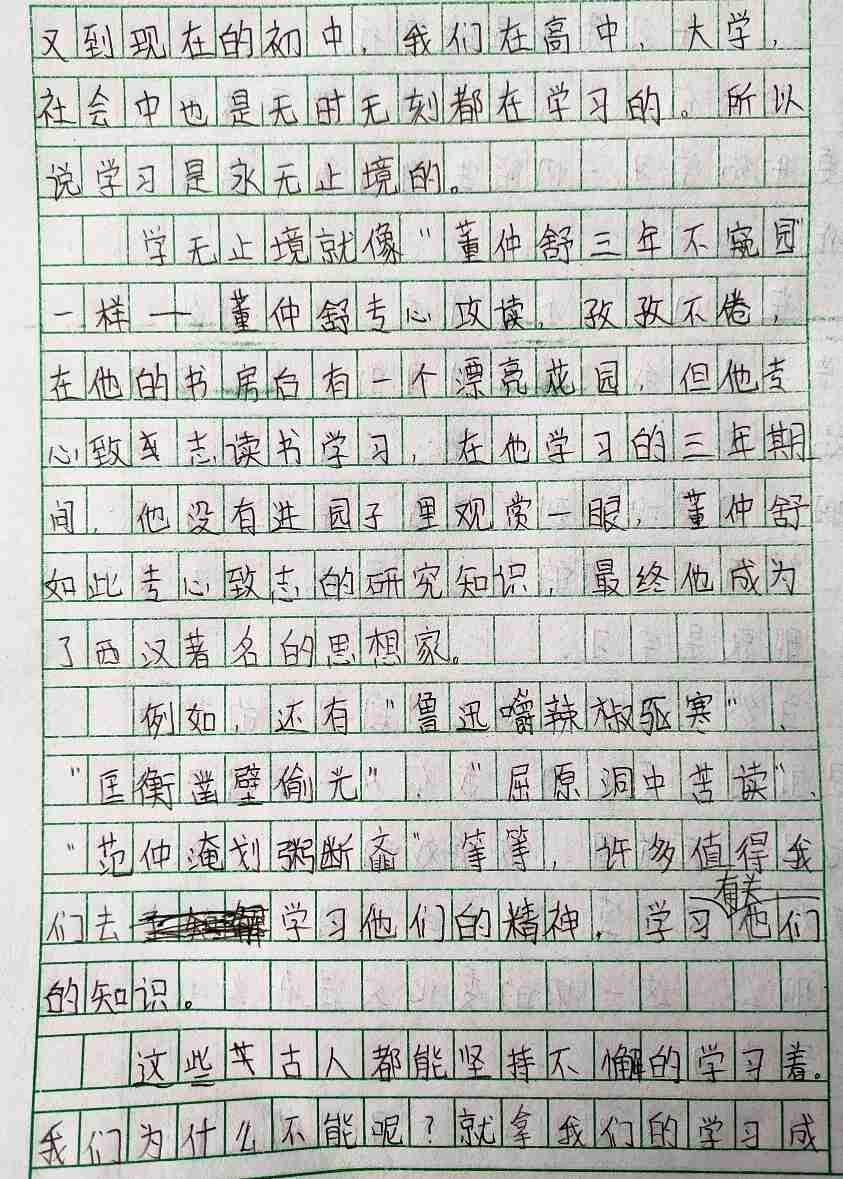 又到现在的初中，我们在高中、大学，
社会中也是无时无刻都在学习的。所以
说学习是永无止境的。
学无止境就像"董仲舒三年不窥园"
一样——董仲舒专心攻读，孜孜不倦，
在他的书房后有一个漂亮花园，但他专
心致志读书学习，在他学习的三年期
间，他没有进园子里观赏一眼，董仲舒
如此专心致志的研究知识，最终他成为
了西汉著名的思想家。
例如，还有"鲁迅嚼辣椒驱寒"、
"匡衡凿壁偷光"、"屈原洞中苦读"、
"范仲淹划粥断齑"等等，许多值得我
们去学习他们的精神，学习有关他们
的知识。
这些古人都能坚持不懈的学习着。
我们为什么不能呢？就拿我们的学习成